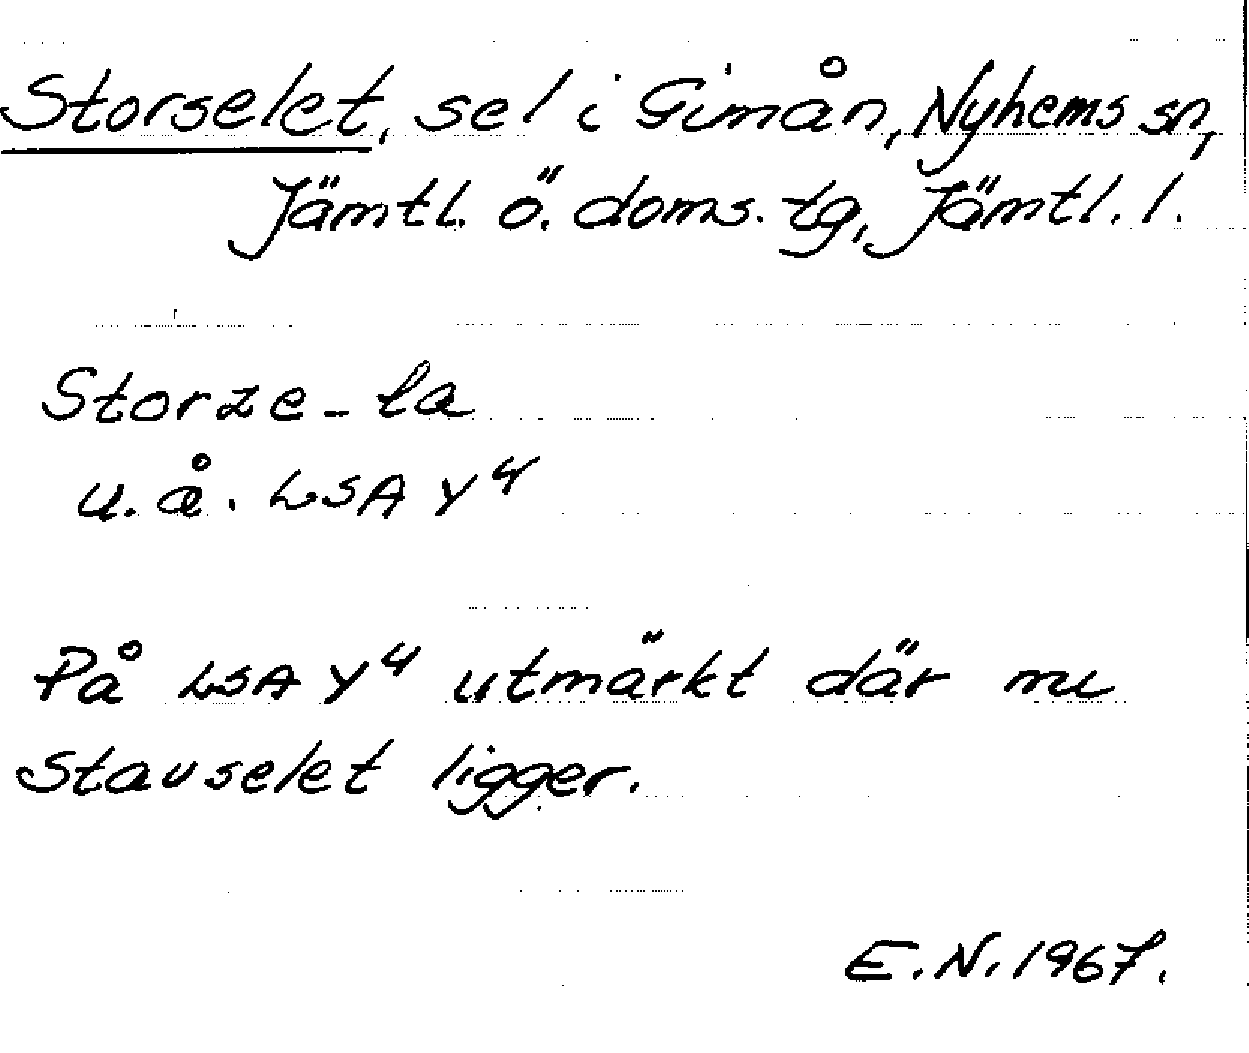 Storselet, sel i Gimån, Nyhems sn,
Jämtl. ö. doms. tg, Jämtl. l.
Storze-la
u.å. LSA Y4
På LSA Y4 utmärkt där nu
Stauselet ligger.
E.N. 1967.